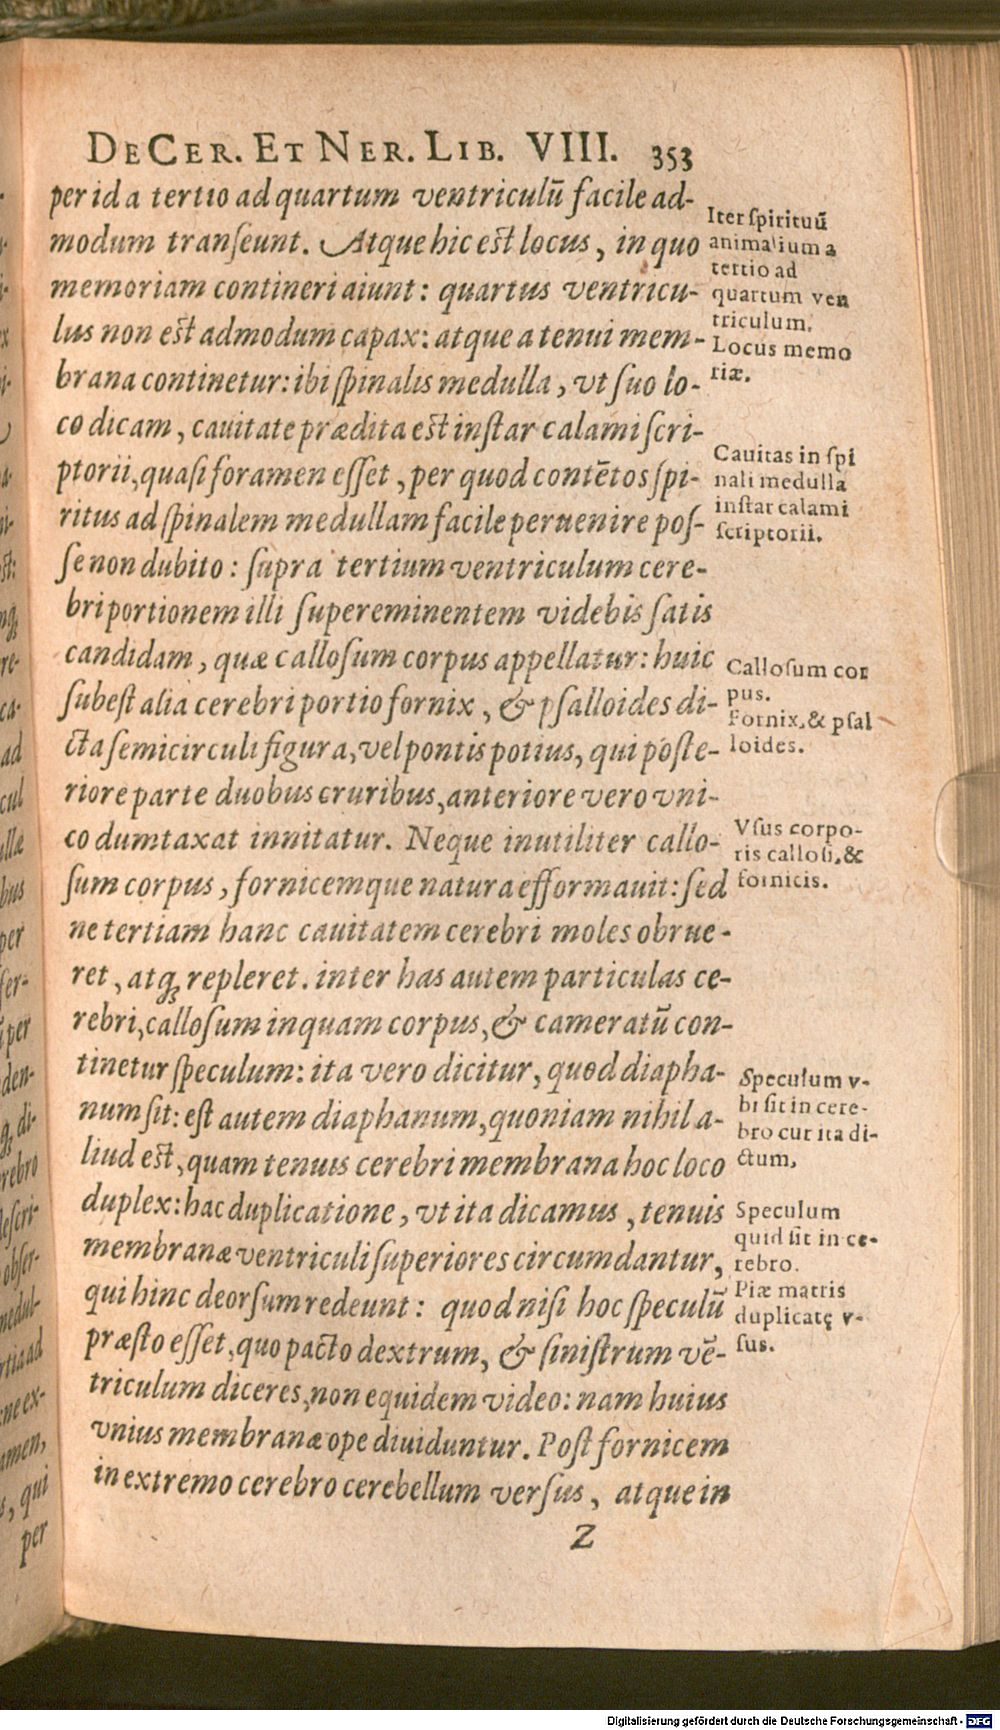 DE CER. ET NER. LIB. VIII. 353
per id a tertio ad quartum ventriculū facile ad-
modum tranſeunt. Atque hic eſt locus, in quo
memoriam contineri aiunt: quartus ventricu-
lus non eſt admodum capax: atque a tenui mem-
brana continetur: ibi ſpinalis medulla, vt ſuo lo-
co dicam, cauitate prædita eſt inſtar calami ſcri-
ptorii, quaſi foramen eſſet, per quod contētos ſpi-
ritus ad ſpinalem medullam facile peruenire poſ-
ſe non dubito: ſupra tertium ventriculum cere-
bri portionem illi ſupereminentem videbis ſatis
candidam, quæ calloſum corpus appellatur: huic
ſubeſt alia cerebri portio fornix, & pſalloides di-
cta ſemicirculi figura, vel pontis potius, qui poſte-
riore parte duobus cruribus, anteriore vero vni-
co dumtaxat innitatur. Neque inutiliter callo-
ſum corpus, fornicemque natura efformauit: ſed
ne tertiam hanc cauitatem cerebri moles obrue-
ret, atq́ꝫ repleret. inter has autem particulas ce-
rebri, calloſum inquam corpus, & cameratū con-
tinetur ſpeculum: ita vero dicitur, quod diapha-
num ſit: eſt autem diaphanum, quoniam nihil a-
liud eſt, quam tenuis cerebri membrana hoc loco
duplex: hac duplicatione, vt ita dicamus, tenuis
membranæ ventriculi ſuperiores circumdantur,
qui hinc deorſum redeunt: quod niſi hoc ſpeculū
præſto eſſet, quo pacto dextrum, & ſiniſtrum vē-
triculum diceres, non equidem video: nam huius
vnius membranæ ope diuiduntur. Poſt fornicem
in extremo cerebro cerebellum verſus, atque in
Z
Iter ſpirituū
animalium a
tertio ad
quartum ven
triculum.
Locus memo
riæ.
Cauitas in ſpi
nali medulla
inſtar calami
ſcriptorii.
Calloſum cor
pus.
Fornix, & pſal
loides.
Vſus corpo-
ris calloſi, &
fornicis.
Speculum v-
bi ſit in cere-
bro cur ita di-
ctum,
Speculum
quid ſit in ce-
rebro.
Piæ matris
duplicatę v-
ſus.
Digitalisierung gefördert durch die Deutsche Forschungsgemeinschaft - DFG